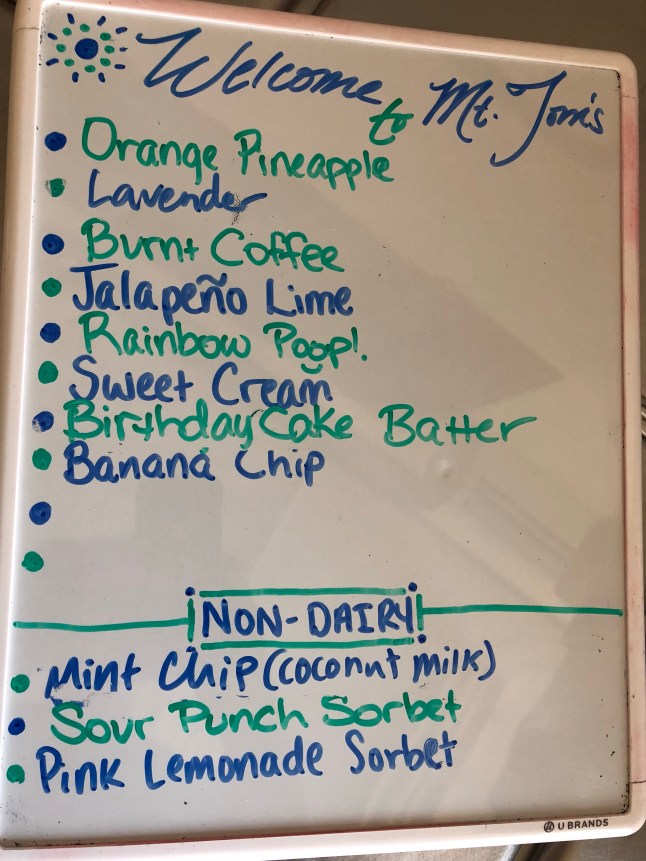 Welcome to Mt. Tom's
Orange Pineapple
Lavender
Burnt Coffee
Jalapeño Lime
Rainbow Poop!
Sweet Cream
Birthday Cake Batter
Banana Chip
NON-DAIRY
Mint Chip (coconut milk)
Sour Punch Sorbet
Pink Lemonade Sorbet
U BRANDS